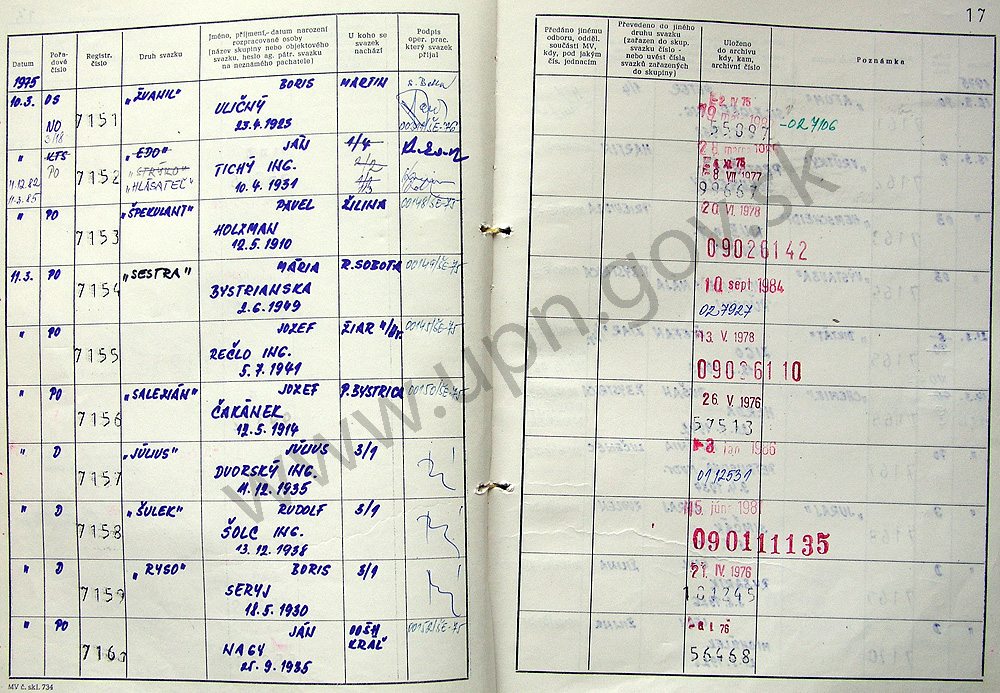 17
Datum
Pořadové číslo
Registr. číslo
Druh svazku
Jméno, příjmení, datum narození rozpracované osoby (název skupiny nebo objektového svazku, heslo ag. pátr. svazku na neznámého pachatele)
U koho se svazek nachází
Podpis oper. prac. který svazek přijal
Předáno jinému odboru, odděl. součásti MV, kdy, pod jakým čís. jednacím
Převedeno do jiného druhu svazku (zařazen do skup. svazku číslo - nebo uvést čísla svazků zařazených do skupiny)
Uloženo do archivu kdy, kam, archivní číslo
Poznámka
1975
10.3. OS 7151 „ŽVANIL" BORIS MARTIN
NO ULIČNÝ
3/18 23.4.1925
2 IV 75
55097 -027106
" KTS 7152 „EDO" JÁN 1/4
PO „STRÝKO" TICHÝ ING. 2/2
11.12.82 „HLÁSATEĽ" 10.4.1931
11.3.85
8 VII 1977
99667
" PO 7153 „ŠPEKULANT" PAVEL ŽILINA 00148/ŠE-75
HOLZMAN
12.5.1910
20 VI. 1978
09026142
11.3. PO 7154 „SESTRA" MÁRIA R.SOBOTA 00149/ŠE-75
BYSTRIANSKA
2.6.1949
10 sept 1984
027927
" PO 7155 JOZEF ŽIAR n/Hr. 00145/ŠE-75
REČLO ING.
5.7.1941
13. V. 1978
09026110
" PO 7156 „SALEZIÁN" JOZEF P.BYSTRICA 00150/ŠE-75
ČAKÁNEK
12.5.1914
26 V 1976
57513
" D 7157 „JÚLIUS" JÚLIUS 3/1
DVORSKÝ ING.
11.12.1935
3 jan 1986
0112531
" D 7158 „ŠULEK" RUDOLF 3/1
ŠOLC ING.
13.12.1938
15. júna 198
090111135
" D 7159 „RYSO" BORIS 3/1
SERYJ
18.5.1930
21. IV 1976
" PO 716 JÁN OOŠH KRÁĽ 00152/ŠE-75
NAGY
25.9.1935
56468
MV č. skl. 734
www.upn.gov.sk